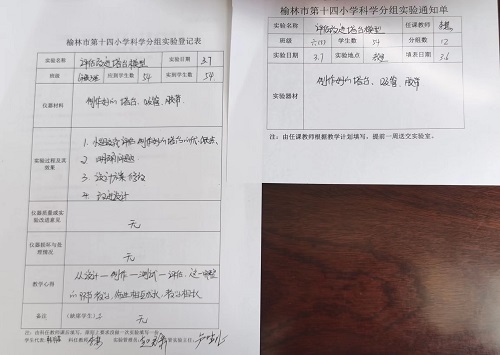 榆林市第十四小学科学分组实验登记表
实验名称 评估改进塔台模型 实验日期 3.7
班级 应到学生数 54 实到学生数 54
仪器材料 制作好的塔台、吸管、胶带
实验过程及其效果
1、小组交流评估制作好的塔台的优缺点
2、明确问题
3、设计方案
4、改进设计
仪器质量或实验改进意见 无
仪器损坏与处理情况 无
教学心得 从设计—制作—测试—评估，这一
备注 （缺席学生） 无
注：由任课教师课后填写，
学生代表 科任教师 实验管理员
榆林市第十四小学科学分组实验通知单
实验名称 评估改进塔台模型 任课教师
班级 学生数 54 分组数 12
实验日期 3.7 实验地点 填表日期 3.6
实验器材 制作好的塔台、吸管、胶带
注：由任课教师根据教学计划填写，提前一周送交实验室。